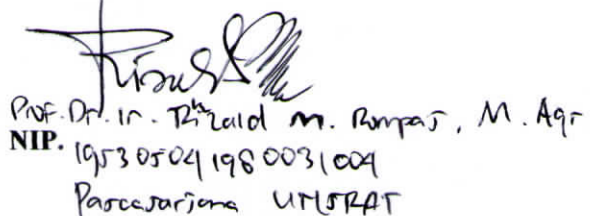 Prof. Dr. Ir. Rizald M. Rompas, M. Agr
NIP. 195305041980031004
Pascasarjana UNSRAT